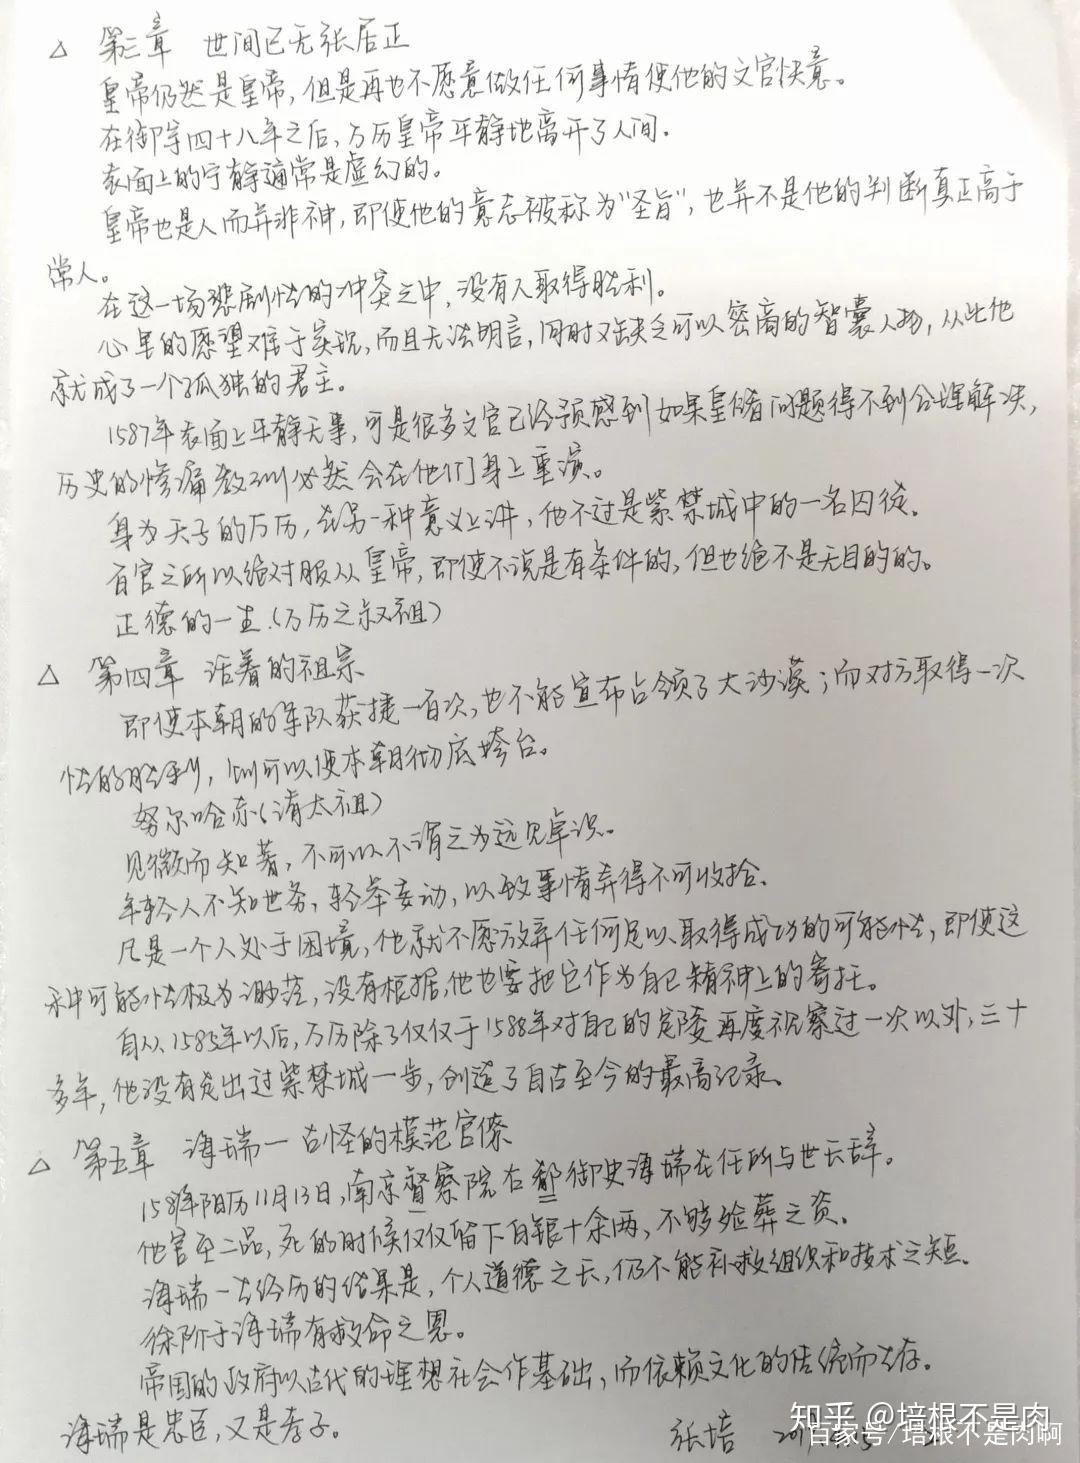 △ 第三章 世间已无张居正
皇帝仍然是皇帝，但是再也不愿意做任何事情使他的文官快意。
在御宇四十八年之后，万历皇帝平静地离开了人间。
表面上的宁静通常是虚幻的。
皇帝也是人而并非神，即使他的意志被称为“圣旨”，也并不是他的判断真正高于
常人。
在这一场悲剧性的冲突之中，没有人取得胜利。
心里的愿望难于实现，而且无法明言，同时又缺乏可以密商的智囊人物，从此他
就成了一个孤独的君主。
1587年表面上平静无事，可是很多文官已经预感到如果皇储问题得不到合理解决，
历史的惨痛教训必然会在他们身上重演。
身为天子的万历，在另一种意义上讲，他不过是紫禁城中的一名囚徒。
百官之所以绝对服从皇帝，即使不说是有条件的，但也绝不是无目的的。
正德的一生.(万历之叔祖)
△ 第四章 活着的祖宗
即使本朝的军队获捷一百次，也不能宣布占领了大沙漠；而对方取得一次
性的胜利，则可以使本朝彻底垮台。
努尔哈赤(清太祖)
见微而知著，不可以不谓之为远见卓识。
年轻人不知世务，轻举妄动，以致事情弄得不可收拾.
凡是一个人处于困境，他就不愿放弃任何足以取得成功的可能性，即使这
种可能性极为渺茫，没有根据，他也要把它作为自己精神上的寄托。
自从1585年以后，万历除了仅仅于1588年对自己的定陵再度视察过一次以外，三十
多年，他没有走出过紫禁城一步，创造了自古至今的最高记录。
△ 第五章 海瑞—古怪的模范官僚
1587年阳历11月13日，南京督察院右都御史海瑞在任所与世长辞。
他官至二品，死的时候仅仅留下白银十余两，不够殓葬之资。
海瑞一生经历的结果是，个人道德之长，仍不能补救组织和技术之短.
徐阶于海瑞有救命之恩。
帝国的政府以古代的理想社会作基础，而依赖文化的传统而生存。
海瑞是忠臣，又是孝子。
张培
知乎 @培根不是肉
百家号/培根不是肉啊